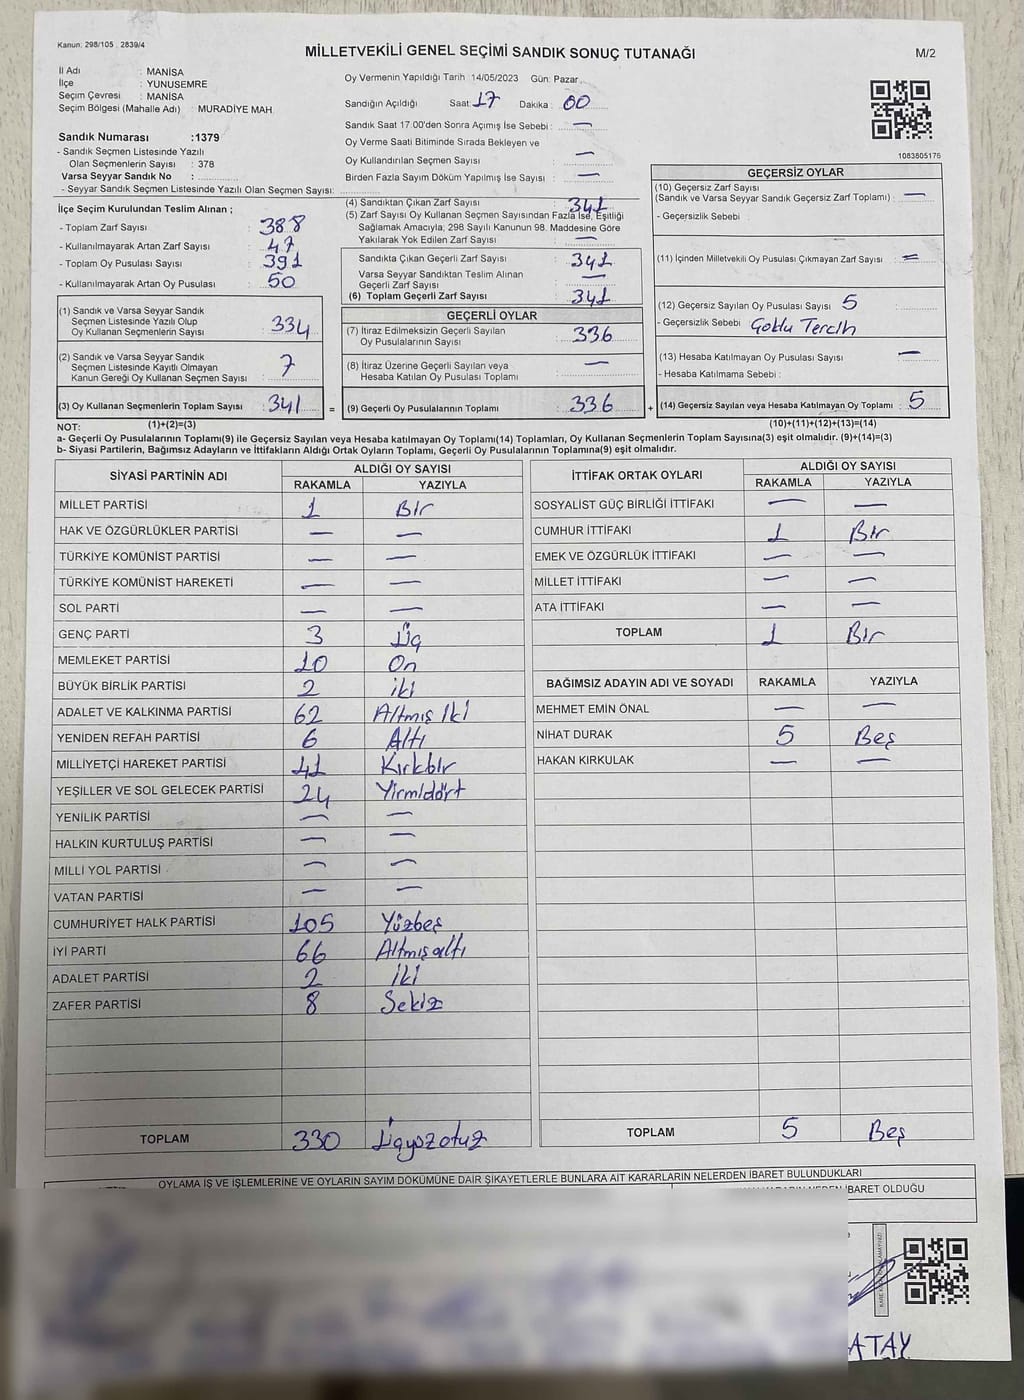 Kanun: 298/105 . 2839/4
MİLLETVEKİLİ GENEL SEÇİMİ SANDIK SONUÇ TUTANAĞI
M/2
İl Adı : MANİSA
İlçe : YUNUSEMRE
Seçim Çevresi : MANİSA
Seçim Bölgesi (Mahalle Adı) : MURADİYE MAH.
Sandık Numarası :1379
- Sandık Seçmen Listesinde Yazılı
Olan Seçmenlerin Sayısı : 378
Varsa Seyyar Sandık No :
- Seyyar Sandık Seçmen Listesinde Yazılı Olan Seçmen Sayısı:
Oy Vermenin Yapıldığı Tarih 14/05/2023 Gün: Pazar
Sandığın Açıldığı Saat: 17 Dakika : 00
Sandık Saat 17.00'den Sonra Açımış İse Sebebi : —
Oy Verme Saati Bitiminde Sırada Bekleyen ve
Oy Kullandırılan Seçmen Sayısı —
Birden Fazla Sayım Döküm Yapılmış İse Sayısı : —
1083805176
İlçe Seçim Kurulundan Teslim Alınan ;
- Toplam Zarf Sayısı : 388
- Kullanılmayarak Artan Zarf Sayısı : 47
- Toplam Oy Pusulası Sayısı : 391
- Kullanılmayarak Artan Oy Pusulası : 50
(1) Sandık ve Varsa Seyyar Sandık
Seçmen Listesinde Yazılı Olup
Oy Kullanan Seçmenlerin Sayısı : 334
(2) Sandık ve Varsa Seyyar Sandık
Seçmen Listesinde Kayıtlı Olmayan
Kanun Gereği Oy Kullanan Seçmen Sayısı : 7
(3) Oy Kullanan Seçmenlerin Toplam Sayısı : 341
(4) Sandıktan Çıkan Zarf Sayısı : 341
(5) Zarf Sayısı Oy Kullanan Seçmen Sayısından Fazla İse, Eşitliği
Sağlamak Amacıyla; 298 Sayılı Kanunun 98. Maddesine Göre
Yakılarak Yok Edilen Zarf Sayısı : —
Sandıkta Çıkan Geçerli Zarf Sayısı : 341
Varsa Seyyar Sandıktan Teslim Alınan
Geçerli Zarf Sayısı : —
(6) Toplam Geçerli Zarf Sayısı : 341
GEÇERLİ OYLAR
(7) İtiraz Edilmeksizin Geçerli Sayılan
Oy Pusulalarının Sayısı : 336
(8) İtiraz Üzerine Geçerli Sayılan veya
Hesaba Katılan Oy Pusulası Toplamı : —
= (9) Geçerli Oy Pusulalarının Toplamı : 336
GEÇERSİZ OYLAR
(10) Geçersiz Zarf Sayısı
(Sandık ve Varsa Seyyar Sandık Geçersiz Zarf Toplamı) : —
- Geçersizlik Sebebi :
(11) İçinden Milletvekili Oy Pusulası Çıkmayan Zarf Sayısı : =
(12) Geçersiz Sayılan Oy Pusulası Sayısı : 5
- Geçersizlik Sebebi : Çoklu Tercih
(13) Hesaba Katılmayan Oy Pusulası Sayısı : —
- Hesaba Katılmama Sebebi :
+ (14) Geçersiz Sayılan veya Hesaba Katılmayan Oy Toplamı : 5
NOT: (1)+(2)=(3) (10)+(11)+(12)+(13)=(14)
a- Geçerli Oy Pusulalarının Toplamı(9) ile Geçersiz Sayılan veya Hesaba katılmayan Oy Toplamı(14) Toplamları, Oy Kullanan Seçmenlerin Toplam Sayısına(3) eşit olmalıdır. (9)+(14)=(3)
b- Siyasi Partilerin, Bağımsız Adayların ve İttifakların Aldığı Ortak Oyların Toplamı, Geçerli Oy Pusulalarının Toplamına(9) eşit olmalıdır.
SİYASİ PARTİNİN ADI ALDIĞI OY SAYISI
RAKAMLA YAZIYLA
MİLLET PARTİSİ 1 Bir
HAK VE ÖZGÜRLÜKLER PARTİSİ — —
TÜRKİYE KOMÜNİST PARTİSİ — —
TÜRKİYE KOMÜNİST HAREKETİ — —
SOL PARTİ — —
GENÇ PARTİ 3 Üç
MEMLEKET PARTİSİ 10 On
BÜYÜK BİRLİK PARTİSİ 2 iki
ADALET VE KALKINMA PARTİSİ 62 Altmış iki
YENİDEN REFAH PARTİSİ 6 Altı
MİLLİYETÇİ HAREKET PARTİSİ 41 Kırkbir
YEŞİLLER VE SOL GELECEK PARTİSİ 24 Yirmidört
YENİLİK PARTİSİ — —
HALKIN KURTULUŞ PARTİSİ — —
MİLLİ YOL PARTİSİ — —
VATAN PARTİSİ — —
CUMHURİYET HALK PARTİSİ 105 Yüzbeş
İYİ PARTİ 66 Altmışaltı
ADALET PARTİSİ 2 İki
ZAFER PARTİSİ 8 Sekiz
TOPLAM 330 Üçyüzotuz
İTTİFAK ORTAK OYLARI ALDIĞI OY SAYISI
RAKAMLA YAZIYLA
SOSYALİST GÜÇ BİRLİĞİ İTTİFAKI — —
CUMHUR İTTİFAKI 1 Bir
EMEK VE ÖZGÜRLÜK İTTİFAKI — —
MİLLET İTTİFAKI — —
ATA İTTİFAKI — —
TOPLAM 1 Bir
BAĞIMSIZ ADAYIN ADI VE SOYADI RAKAMLA YAZIYLA
MEHMET EMİN ÖNAL — —
NİHAT DURAK 5 Beş
HAKAN KIRKULAK — —
TOPLAM 5 Beş
OYLAMA İŞ VE İŞLEMLERİNE VE OYLARIN SAYIM DÖKÜMÜNE DAİR ŞİKAYETLERLE BUNLARA AİT KARARLARIN NELERDEN İBARET BULUNDUKLARI
İBARET OLDUĞU
ATAY